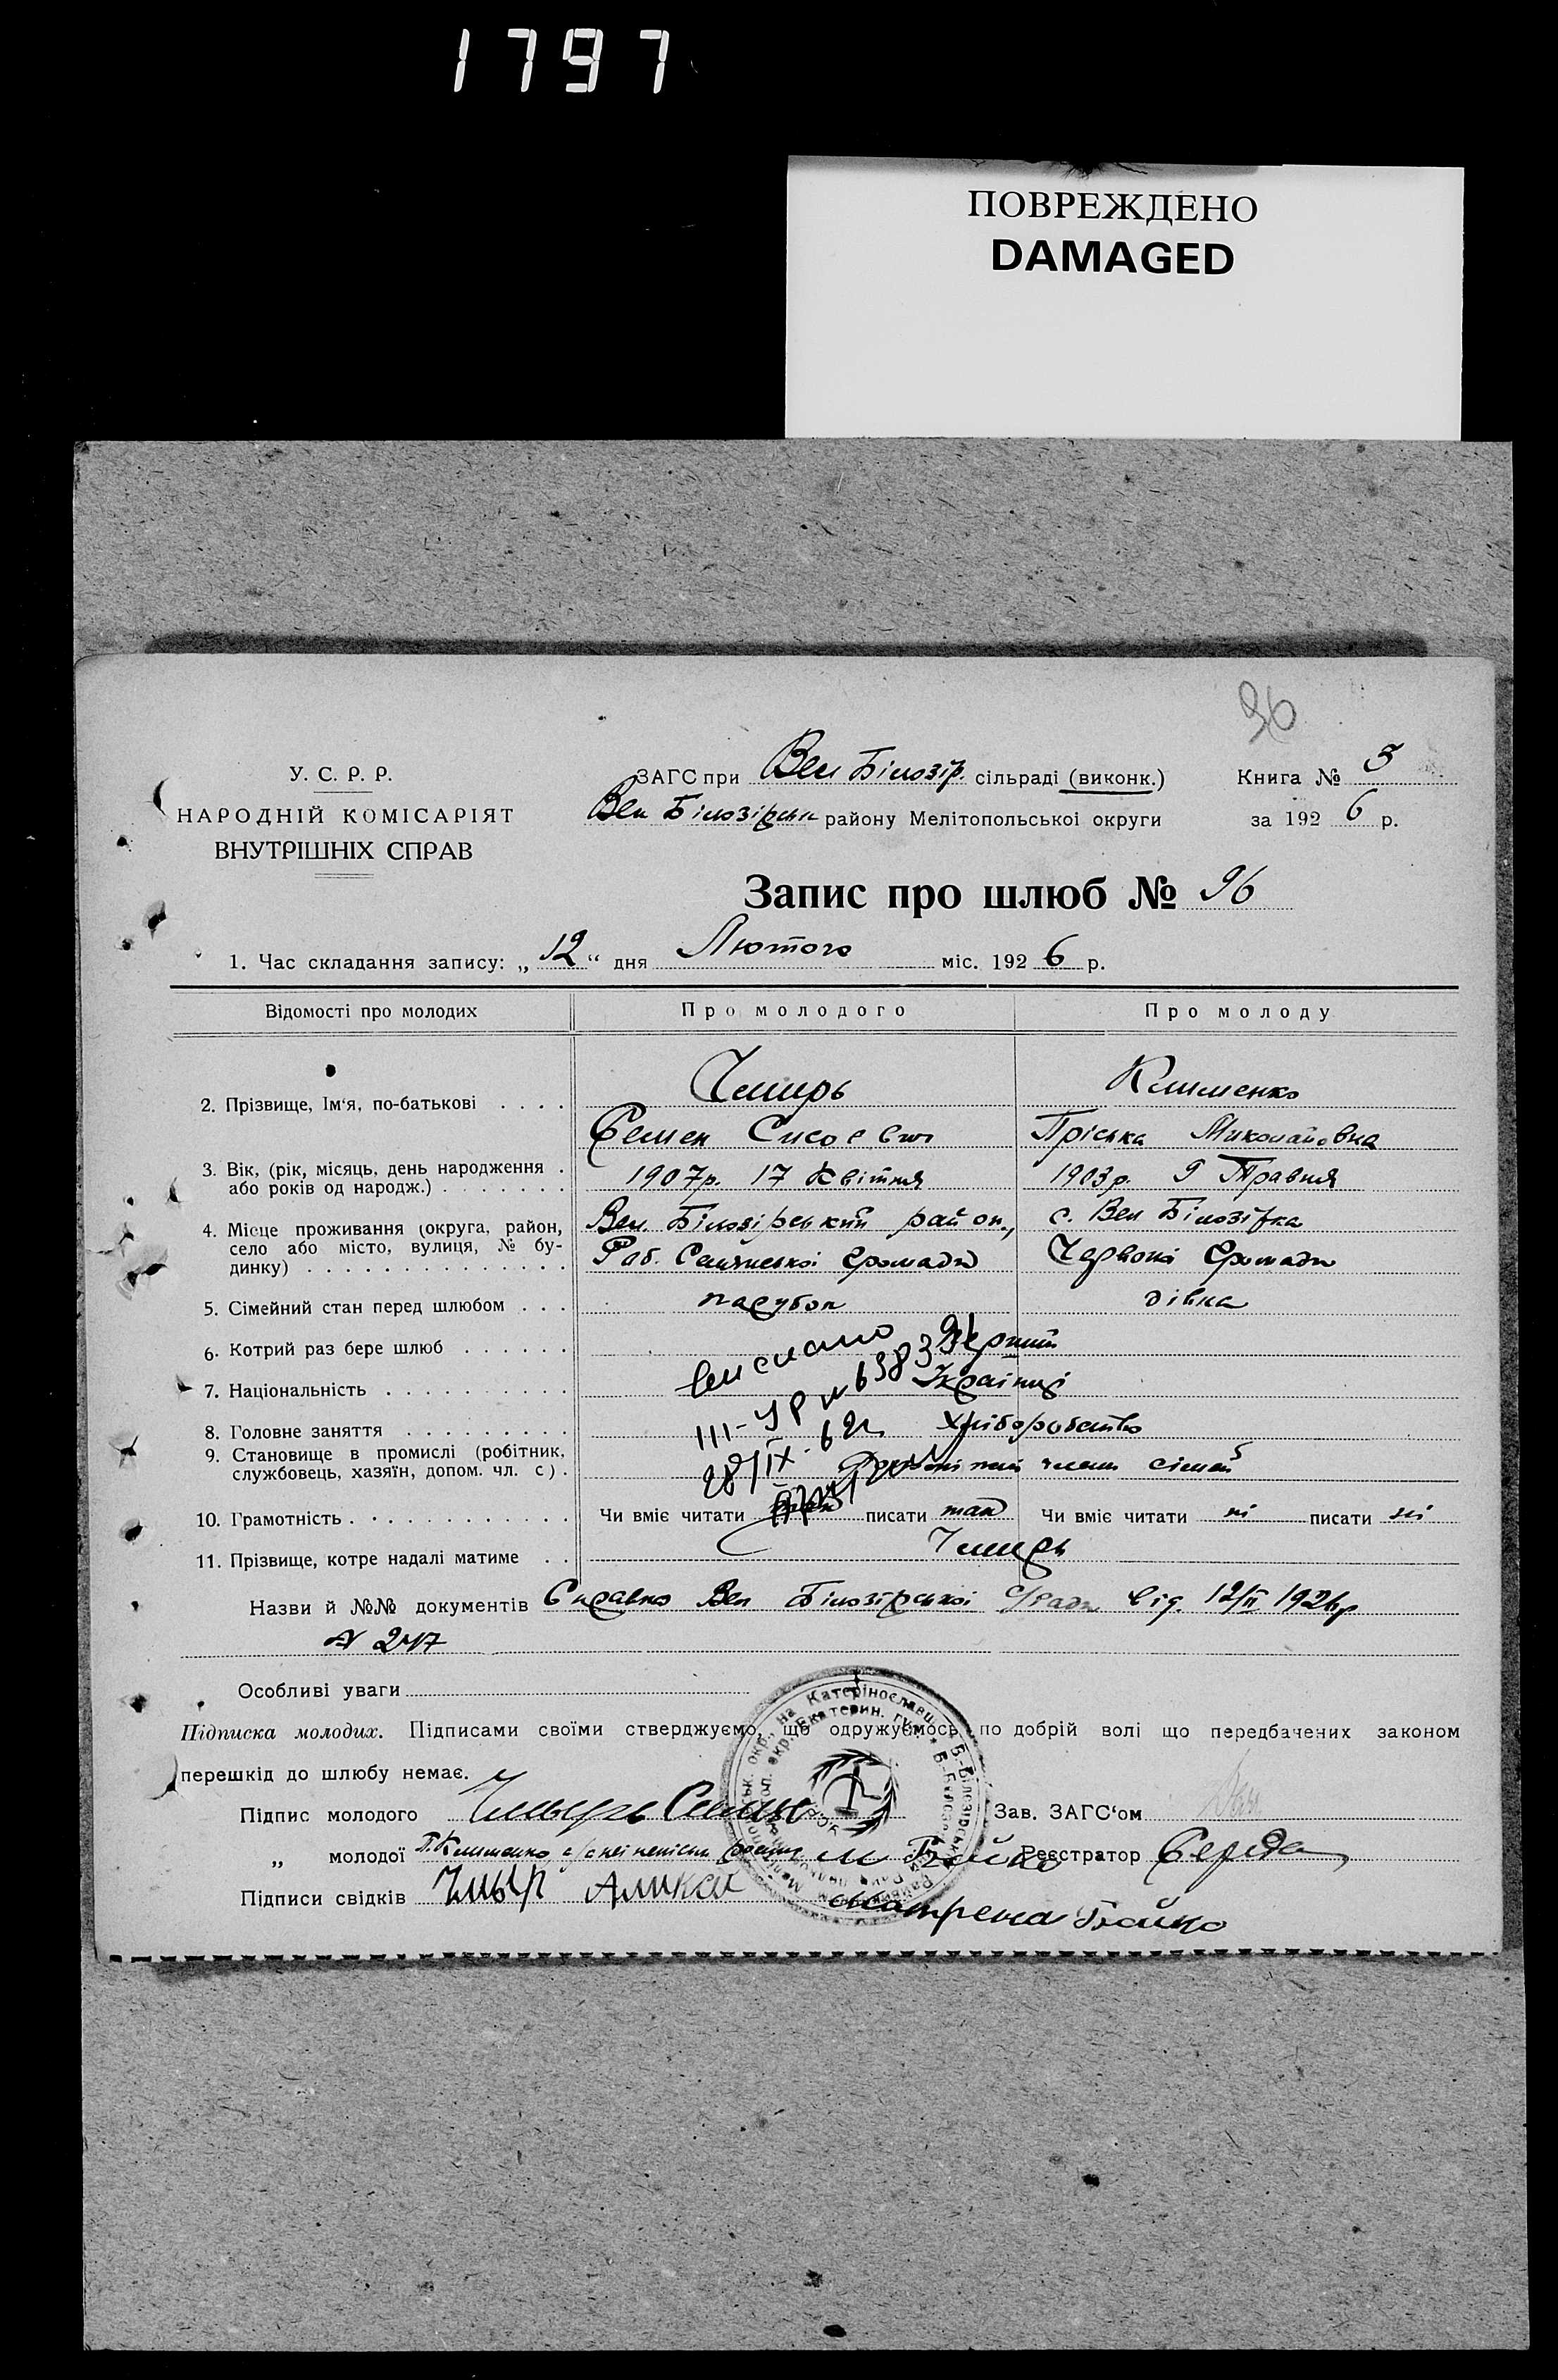 1797
ПОВРЕЖДЕНО
DAMAGED
96
У. С. Р. Р.
НАРОДНІЙ КОМІСАРІЯТ
ВНУТРІШНІХ СПРАВ
ЗАГС при Вел Білозір. сільраді (виконк.)
Книга № 3
Вел Білозірськ району Мелітопольської округи
за 1926 р.
Запис про шлюб № 96
1. Час складання запису: „12“ дня Лютого міс. 1926 р.
Відомості про молодих
Про молодого
Про молоду
2. Прізвище, Ім‘я, по-батькові . . . .
Чмирь
Клименко
Семен Сисоевич
Пріська Миколаївна
3. Вік, (рік, місяць, день народження .
або років од народж.) . . . . . . .
1907р. 17 Квітня
1903р. 9 Травня
4. Місце проживання (округа, район,
село або місто, вулиця, № бу-
динку) . . . . . . . . . . . . . .
Вел. Білозірський район,
с. Вел Білозірка
Громади
Червоної Громади
5. Сімейний стан перед шлюбом . . .
парубок
дівка
6. Котрий раз бере шлюб . . . . . .
Перший
7. Національність . . . . . . . . . .
Українці
8. Головне заняття . . . . . . . . .
хліборобство
9. Становище в промислі (робітник,
службовець, хазяїн, допом. чл. с) .
члени сімей
Виписано
III-УР № 638391
28/IX-62г.
10. Грамотність . . . . . . . . . . . .
Чи вміє читати писати так
Чи вміє читати ні писати ні
11. Прізвище, котре надалі матиме . .
Чмирь
Назви й №№ документів Справка Вел Білозірської с/ради від. 12/II 1926р
N 247
Особливі уваги
Підписка молодих. Підписами своїми стверджуємо, що одружуємось по добрій волі що передбачених законом
перешкід до шлюбу немає.
Підпис молодого Чмырь Семен
Зав. ЗАГС‘ом
„ молодої П. Клименко
Бойко
Реєстратор Середа
Підписи свідків Чмыр
Мотрена Бойко